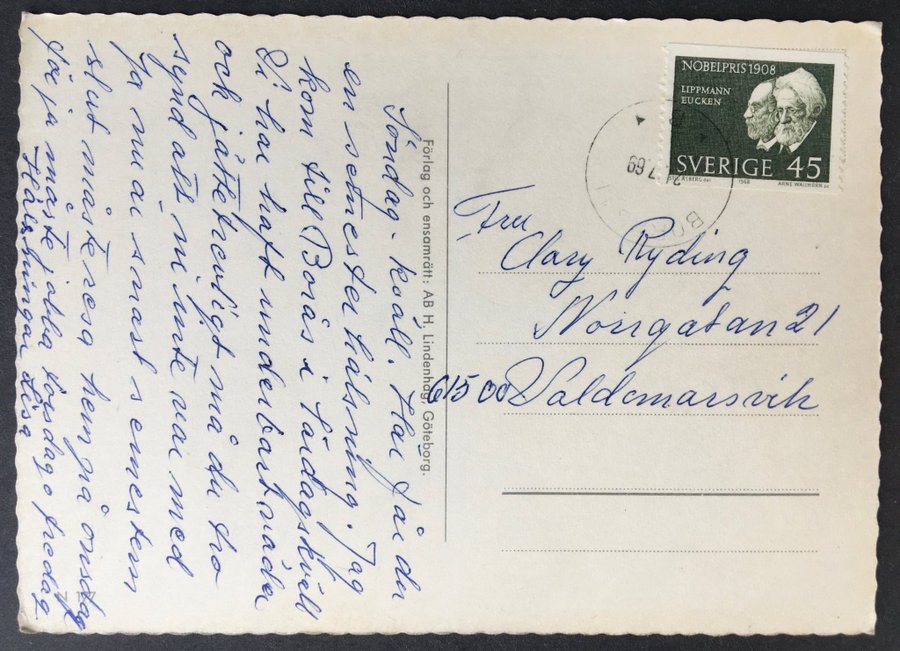 Söndag-kväll. Här får du
en semesterhälsning. Jag
kom till Borås i Lördagskväll
Vi har haft underbart väder
och jättetrevligt må du tro
synd att ni inte var med
Ja nu är snart semestern
slut måste resa hem på onsdag
för ja måste jobba torsdag o fredag
Hälsningar Lisa
Förlag och ensamrätt: AB H. Lindenhag, Göteborg.
NOBELPRIS 1908
LIPPMANN
EUCKEN
SVERIGE 45
1968 ARNE WALLHORN sc
7.69
Fru
Clary Ryding
Norrgatan 21
61500 Valdemarsvik